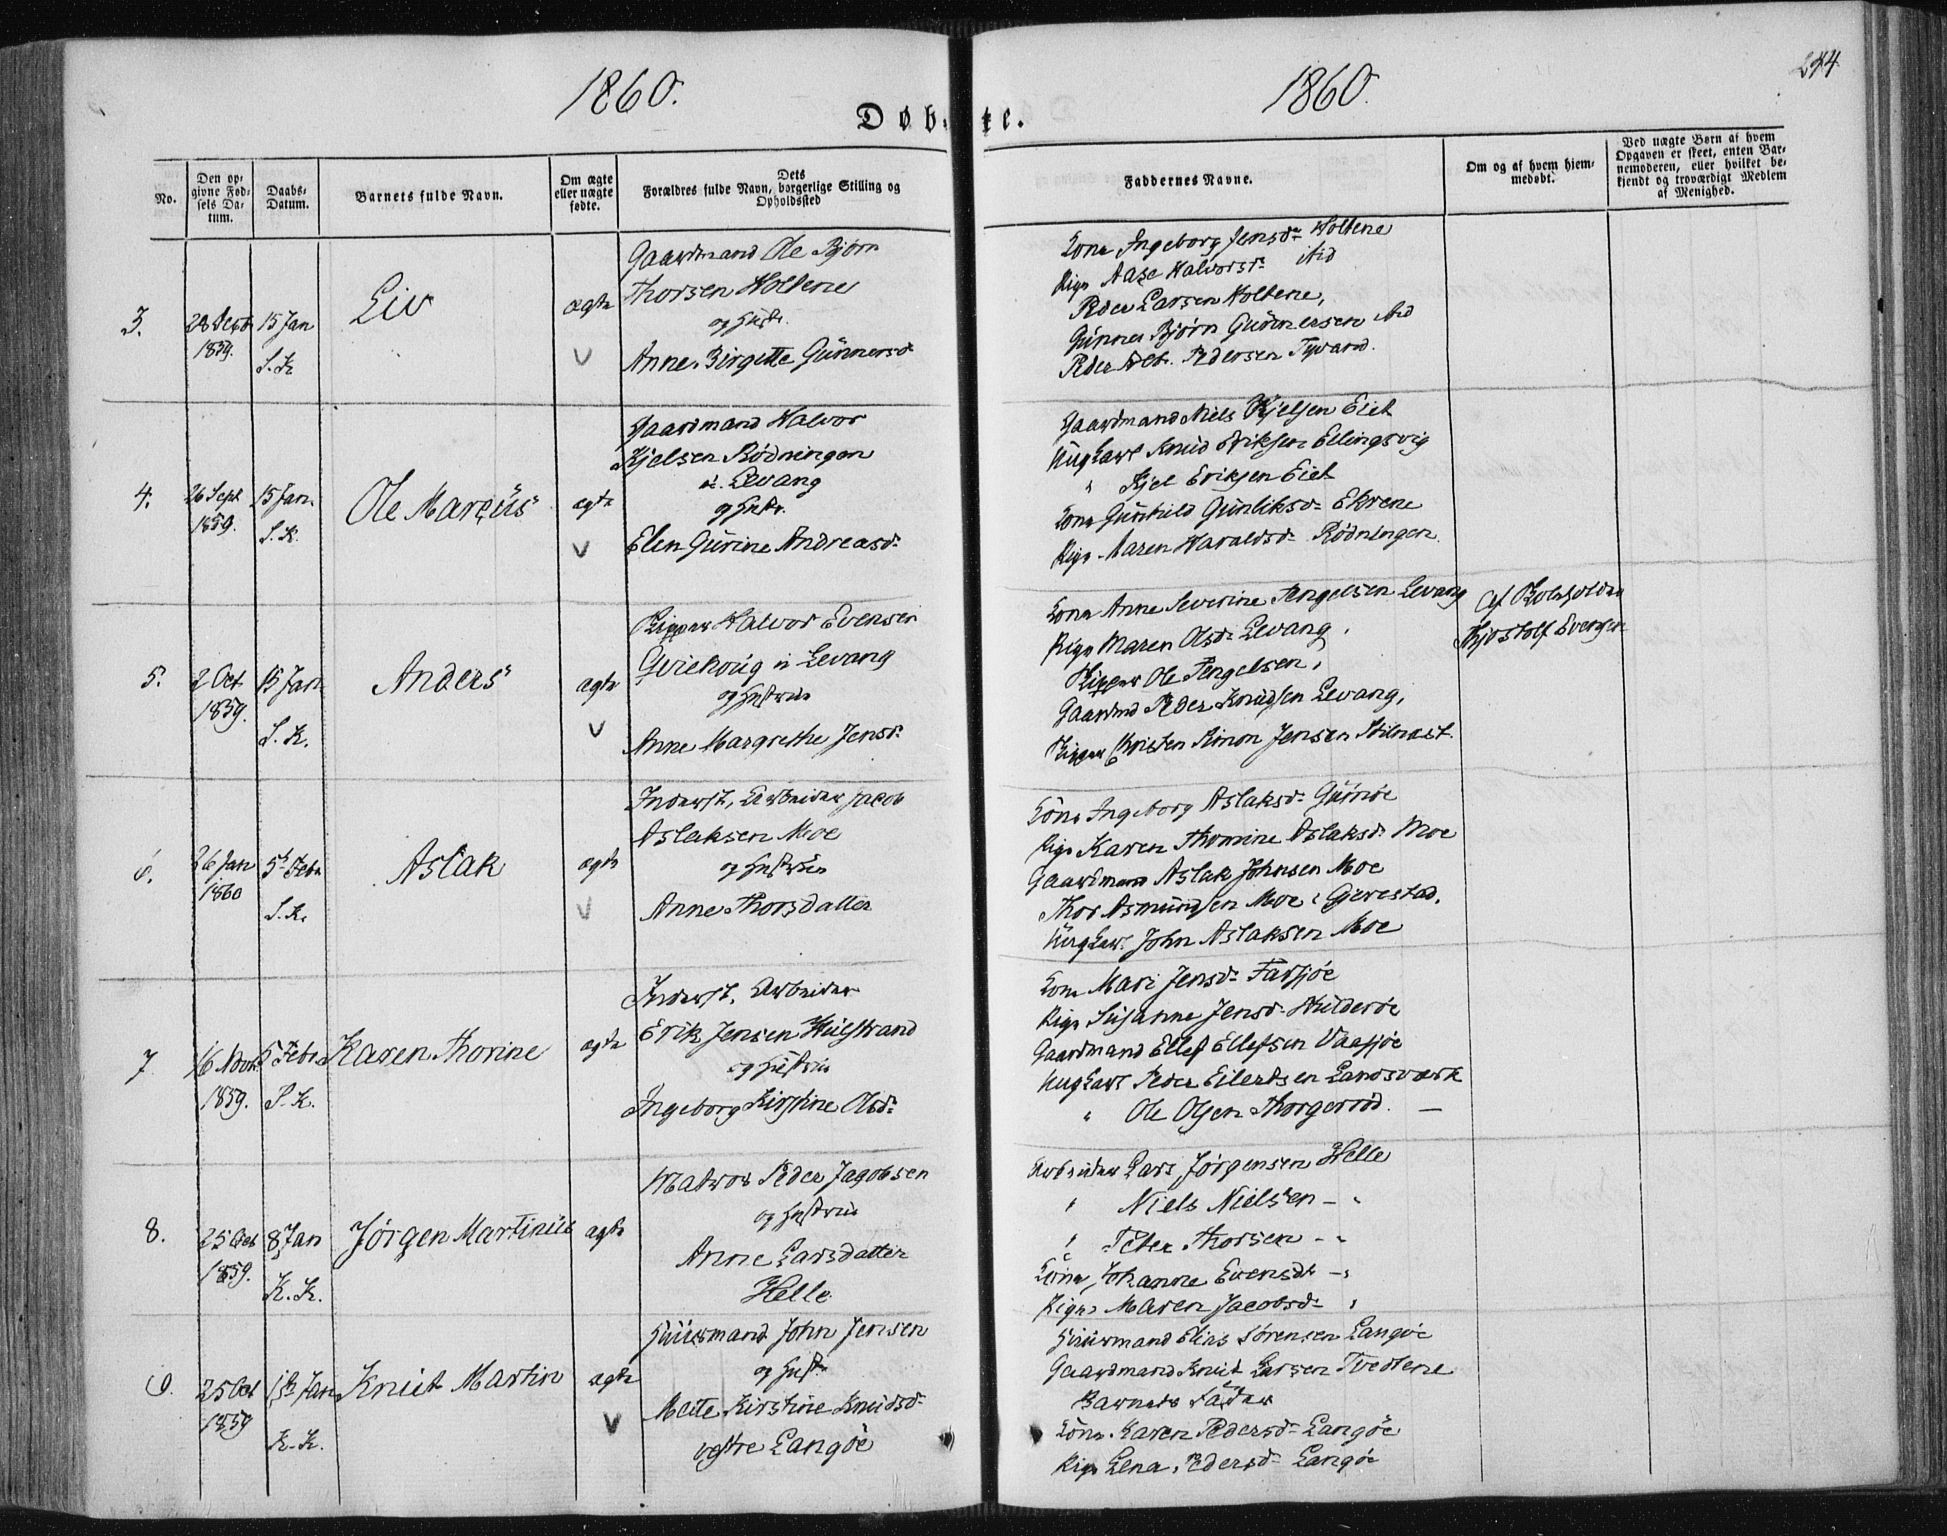 1860.
1860.
244
Døbte.
No.
Den opgivne Fødsels Datum.
Daabs-Datum.
Barnets fulde Navn.
Om ægte eller uægte fødte.
Dets Forældres fulde Navn, borgerlige Stilling og Opholdssted
Faddernes Navne.
Om og af hvem hjemmedøbt.
Ved uægte Børn af hvem Opgaven er skeet, enten Barnemoderen, eller hvilket bekjendt og troværdigt Medlem af Menighed.
3.
28 Sept 1859.
15 Jan
S. K
Liv
ægte
Gaardmand Ole Bjørn
Thorsen Holtene
og Hustr.
Anne Birgitte Gunnersd
Kone Ingeborg Jensdr Holtene
Pige Aase Halvorsdr ibid
Peder Larsen Holtene,
Gunner Bjørn Gunnersen ibid
Peder Pedersen Tyvand.
4.
26 Sept 1859.
15 Jan.
S. K.
Ole Marcus
ægte
Gaardmand Halvor
Kjelsen Rødningen
i Levang
og Hustr.
Elen Gurine Andreasdr
Gaardmand Niels Kjelsen Eiet
Ungkarl Knud Eriksen Ellingsvig
" Kjel Eriksen Eiet
Kone Gunhild Gunliksdr Ekrene
Pige Maren Haraldsdr Rødningen
5.
2 Oct 1859.
15 Jan
S. K.
Anders
ægte
Skipper Halvor Evensen
i Levang
og Hustrue
Anne Margrethe Jensdr
Kone Anne Severine Tengelsen Levang
Pige Maren Olsdr Levang,
Skipper Ole Tengelsen,
Gaardmd Peder Knudsen Levang,
Skipper Christen Simon Jensen Stilnæst.
Af
Kjøstolf Evensen
6.
26 Jan 1860
5 Febr
S. K.
Aslak
ægte
Inderst, Arbeider Jacob
Aslaksen Moe
og Hustrue
Anne Thorsdatter
Kone Ingeborg Aslaksdr Gumøe
Pige Karen Thomine Aslaksdr Moe
Gaardmand Aslak Johnsen Moe
Thor Asmundsen Moe i Gjerestad.
Ungkarl John Aslaksen Moe
7
16 Novbr 1859.
5 Febr
S. K.
Karen Thorine
ægte
Inderst, Arbeider
Erik Jensen Hulstrand
og Hustrue
Ingeborg Kirstine Olsdr
Kone Mari Jensdr Farsjøe
Pige Susanne Jensdr Skilderøe
Gaardmand Ellef Ellefsen Vaasjøe
Ungkarl Peder Eilertsen Landsværk
" Ole Olsen Thorgersrød.
8.
25 Oct 1859.
8 Jan
K. K.
Jørgen Martinus
ægte
Matros Peder Jagobsen
og Hustrue
Anne Larsdatter
Helle
Arbeider Lars Jørgensen Helle
" Niels Nielsen - "
" Peter Thorsen - "
Kone Johanne Evensdr - "
Pige Maren Jacobsdr "
9.
25 Oct 1859
15 Jan
K. K.
Knut Martin
ægte
Huusmand John Jensen
og Hust.
Mette Kirstine Knudsdr
vestre Langøe
Huusmand Elias Sørensen Langøe
Gaardmand Knut Larsen Tvedtene
Barnets Fader
Kone Karen Pedersdr Langøe
Pige Lena Pedersdr Langøe